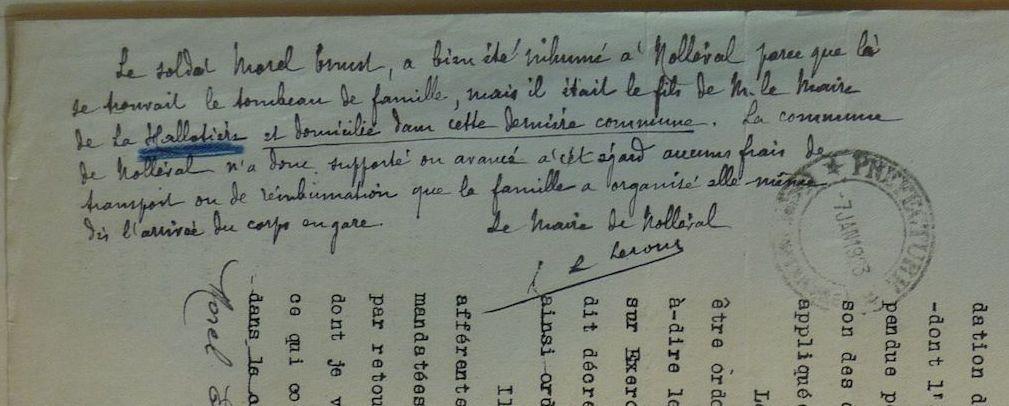 Le soldat Morel Ernest, a bien été inhumé à Nolléval parce que là
se trouvait le tombeau de famille, mais il était le fils de M. le Maire
de La Hallotière et domicilié dans cette dernière commune. La commune
de Nolléval n'a donc supporté ou avancé à cet égard aucuns frais de
transport ou de réinhumation que la famille a organisé elle même
dès l'arrivée du corps en gare.
Le Maire de Nolléval
PREFECTURE
7 JAN 1923
dation d
-dont l'
pendue p
son des
appliquée
Le
être ordo
à-dire le
sur Exer
dit décre
ainsi ord
Il
afférente
mandatées
par retou
dont je v
ce qui co
dans la a
Morel